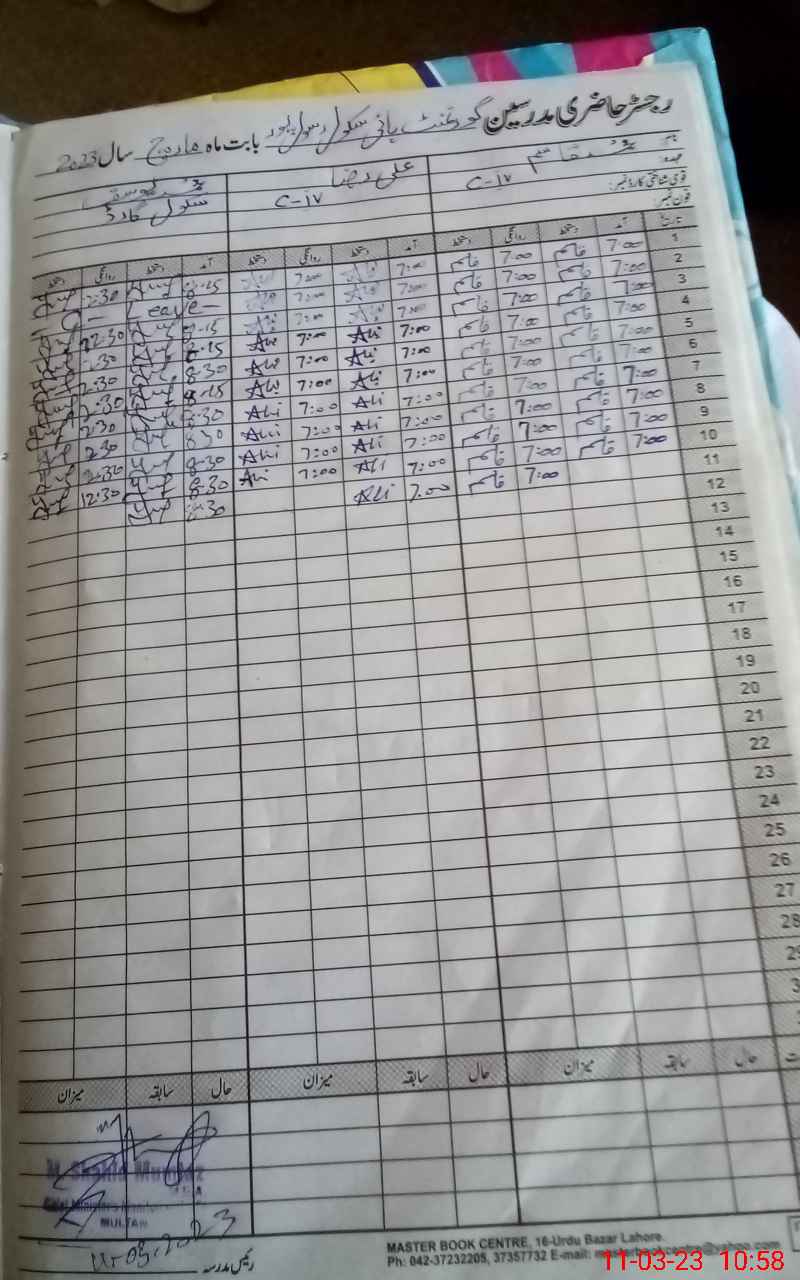 رجسٹر حاضری مدرسین گورنمنٹ ہائی سکول رسول پور بابت ماہ مارچ سال 2023
نام: محمد قاسم علی رضا محمد یوسف
عہدہ: C-IV C-IV سکول گارڈ
قومی شناختی کارڈ نمبر:
فون نمبر:
تاریخ آمد دستخط روانگی دستخط آمد دستخط روانگی دستخط آمد دستخط روانگی دستخط
1 7:00 قاسم 7:00 قاسم 7:00 7:00 8:15 12:30
2 7:00 قاسم 7:00 قاسم 7:00 7:00 Leave
3 7:00 قاسم 7:00 قاسم 7:00 7:00 8:15 12:30
4 7:00 قاسم 7:00 قاسم 7:00 Ali 7:00 Ali 8:15 12:30
5 7:00 قاسم 7:00 قاسم 7:00 Ali 7:00 Ali 8:30 12:30
6 7:00 قاسم 7:00 قاسم 7:00 Ali 7:00 Ali 8:15 12:30
7 7:00 قاسم 7:00 قاسم 7:00 Ali 7:00 Ali 8:30 12:30
8 7:00 قاسم 7:00 قاسم 7:00 Ali 7:00 Ali 8:30 12:30
9 7:00 قاسم 7:00 قاسم 7:00 Ali 7:00 Ali 8:30 12:30
10 7:00 قاسم 7:00 قاسم 7:00 Ali 7:00 Ali 8:30 12:30
11 7:00 قاسم 7:00 Ali 8:30
12
13
14
15
16
17
18
19
20
21
22
23
24
25
26
27
28
حال سابقہ میزان حال سابقہ میزان حال سابقہ میزان
MULTAN
11-03-2023
رئیس مدرسہ
MASTER BOOK CENTRE, 16-Urdu Bazar Lahore.
Ph: 042-37232205, 37357732 E-mail: masterbookcentre@yahoo.com
11-03-23 10:58